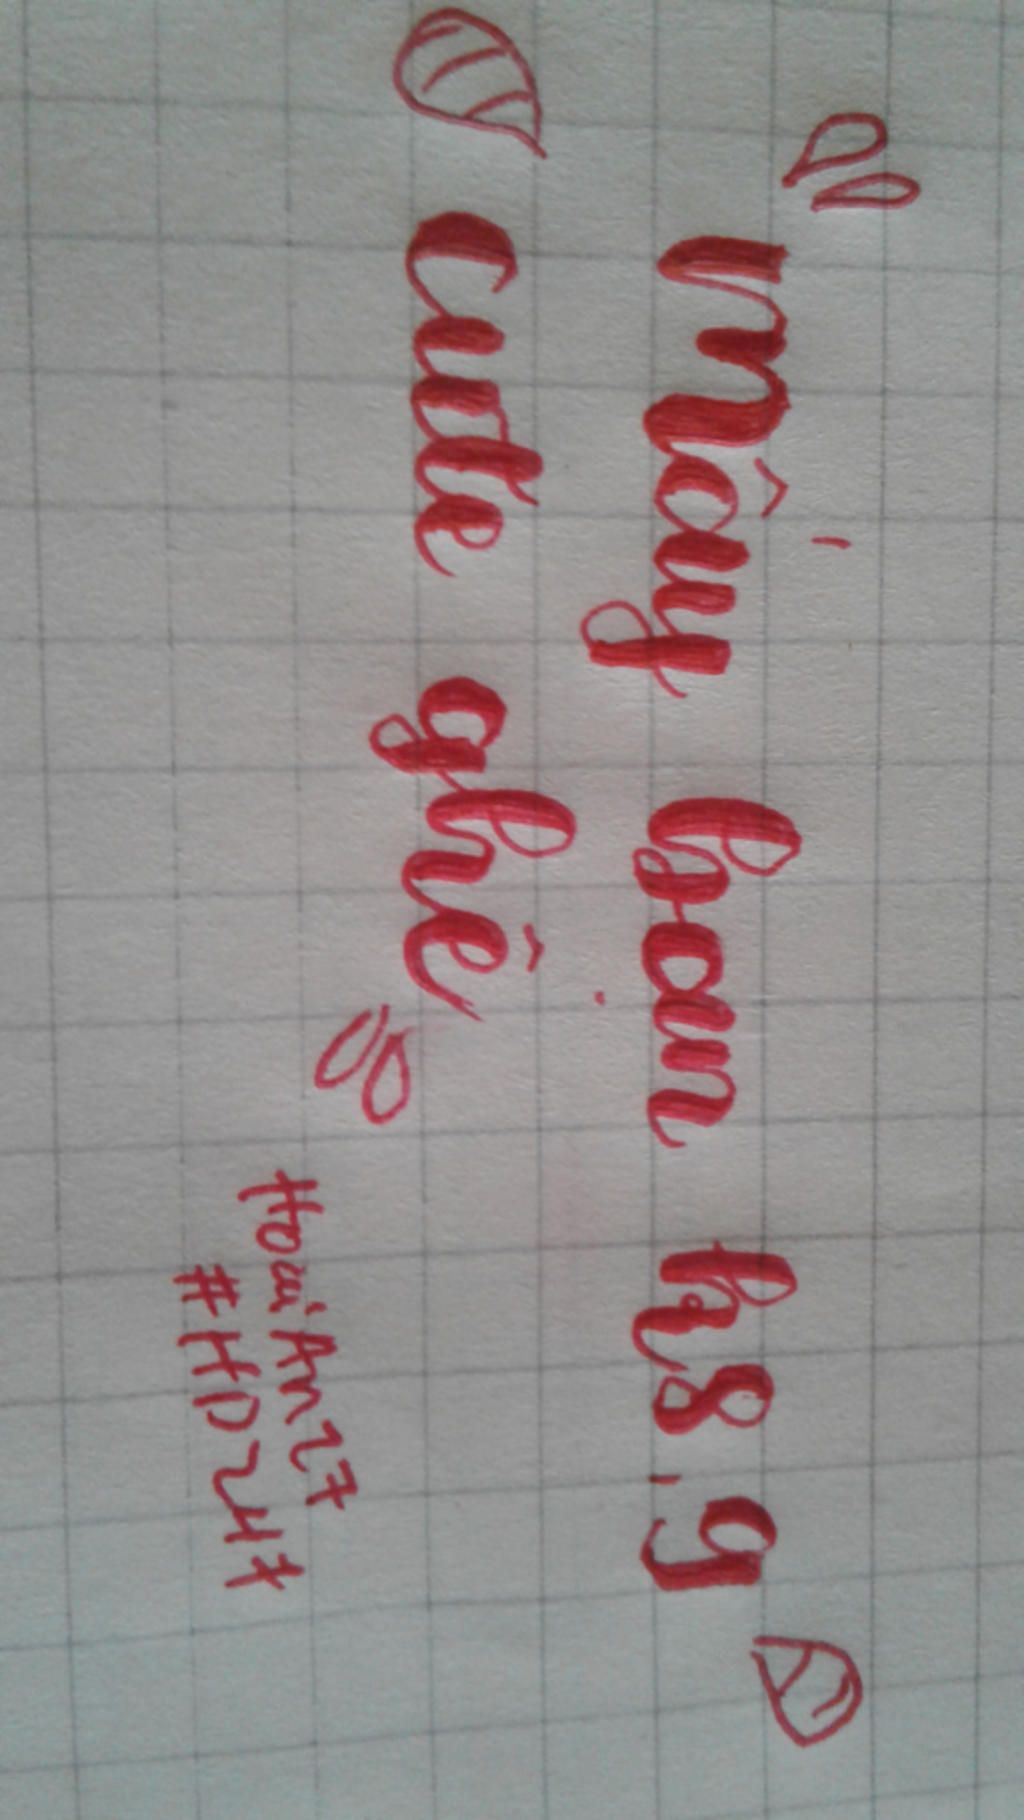 mấy bạn k8, 9
cute ghê
HoàiAn27
#HD247